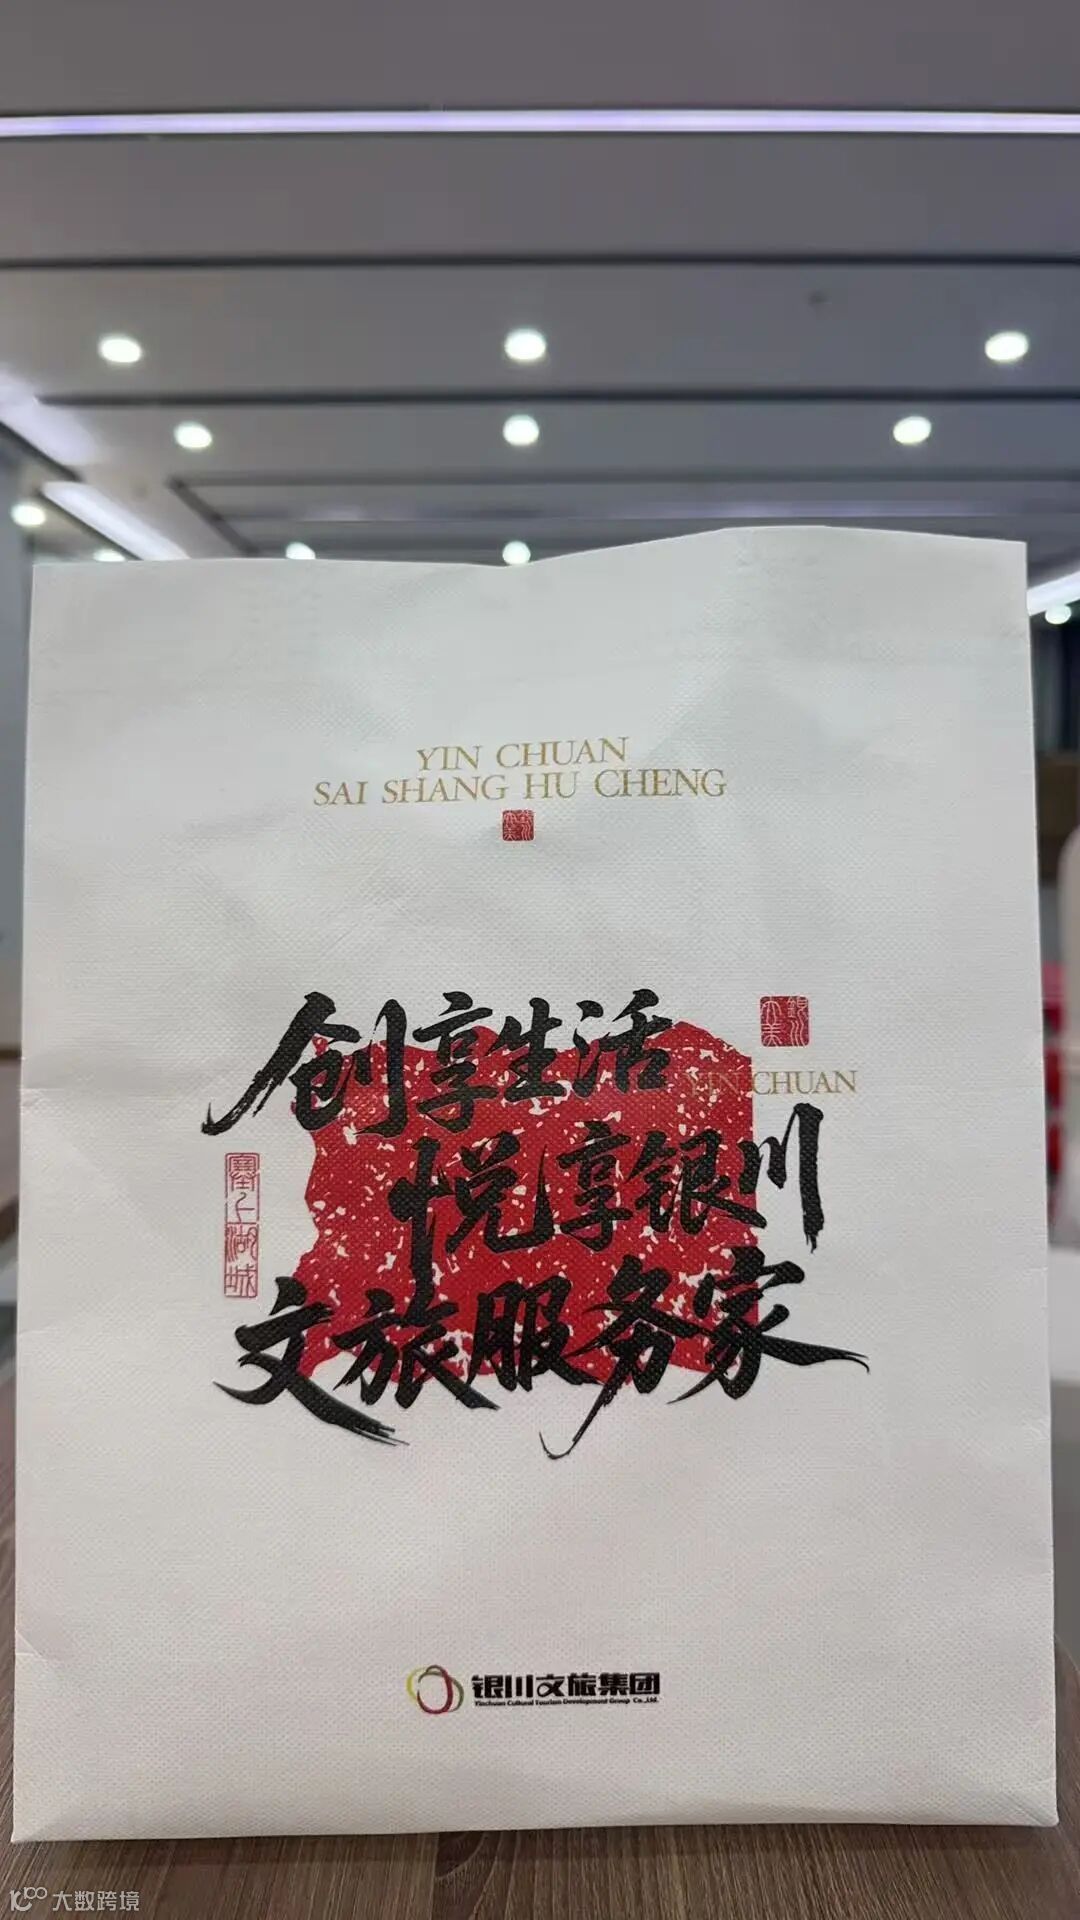 YIN CHUAN
SAI SHANG HU CHENG
大美
银川
创享生活
大美
银川
YIN CHUAN
悦享银川
塞上湖城
文旅服务家
银川文旅集团
Yinchuan Cultural Tourism Development Group Co.,Ltd.
大数跨境